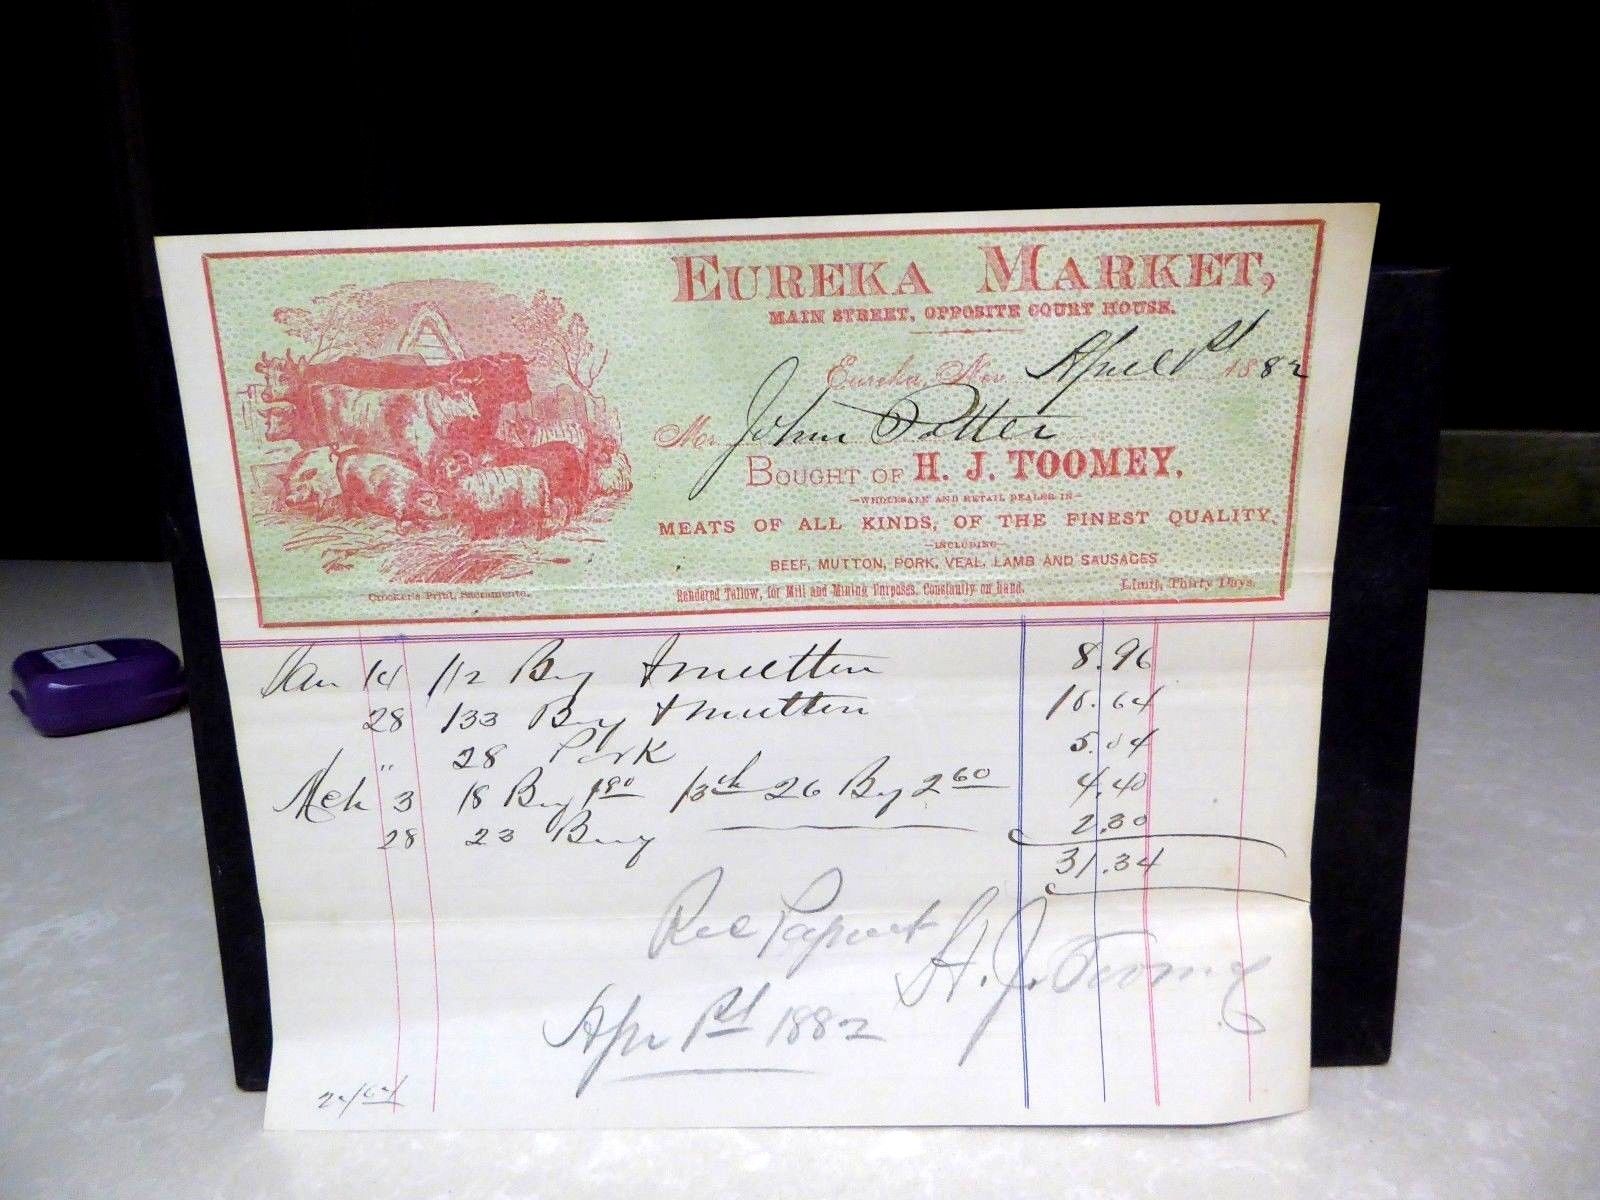 EUREKA MARKET,
MAIN STREET, OPPOSITE COURT HOUSE.
Eureka, Nev. April 1st 1882
Mr. John Potter
BOUGHT OF H. J. TOOMEY,
—WHOLESALE AND RETAIL DEALER IN—
MEATS OF ALL KINDS, OF THE FINEST QUALITY,
—INCLUDING—
BEEF, MUTTON, PORK, VEAL, LAMB AND SAUSAGES
Rendered Tallow, for Mill and Mining Purposes, Constantly on hand.
Limit, Thirty Days.
Crocker's Print, Sacramento.
Jan 14 112 & Mutton 8.96
28 133 & Mutton 10.64
" 28 Pork 5.04
Mch 3 18 1.80 13th 26 2.60 4.40
28 23 2.30
31.34
Rec Payment H. J. Toomey
Apr 1st 1882